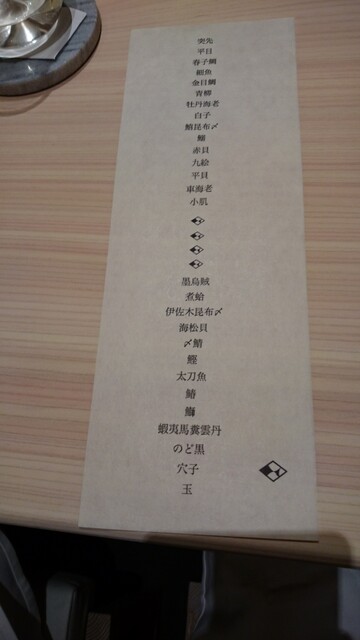 突先
平目
春子鯛
細魚
金目鯛
青柳
牡丹海老
白子
鱚昆布〆
鰯
赤貝
九絵
平貝
車海老
小肌
墨烏賊
煮蛤
伊佐木昆布〆
海松貝
〆鯖
鰹
太刀魚
鰆
鰤
蝦夷馬糞雲丹
のど黒
穴子
玉